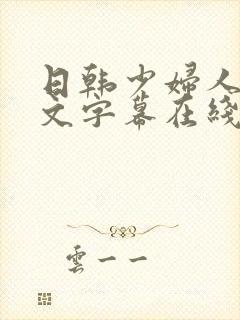 日韩少婦人
文字幕在綫
雲一一